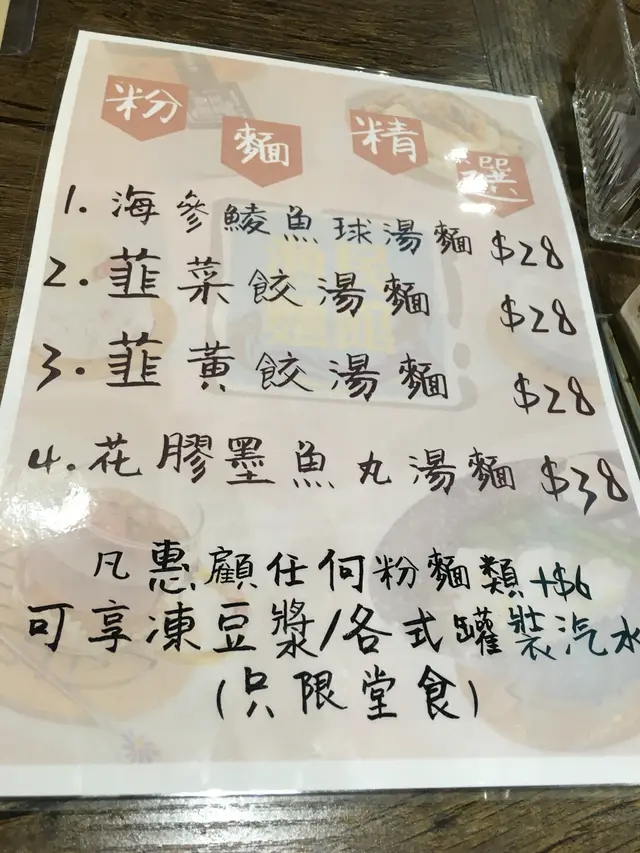 粉麵精選
1. 海參鯪魚球湯麵 $28
2. 韮菜餃湯麵 $28
3. 韮黃餃湯麵 $28
4. 花膠墨魚丸湯麵 $38
凡惠顧任何粉麵類+$6
可享凍豆漿/各式罐裝汽水
(只限堂食)